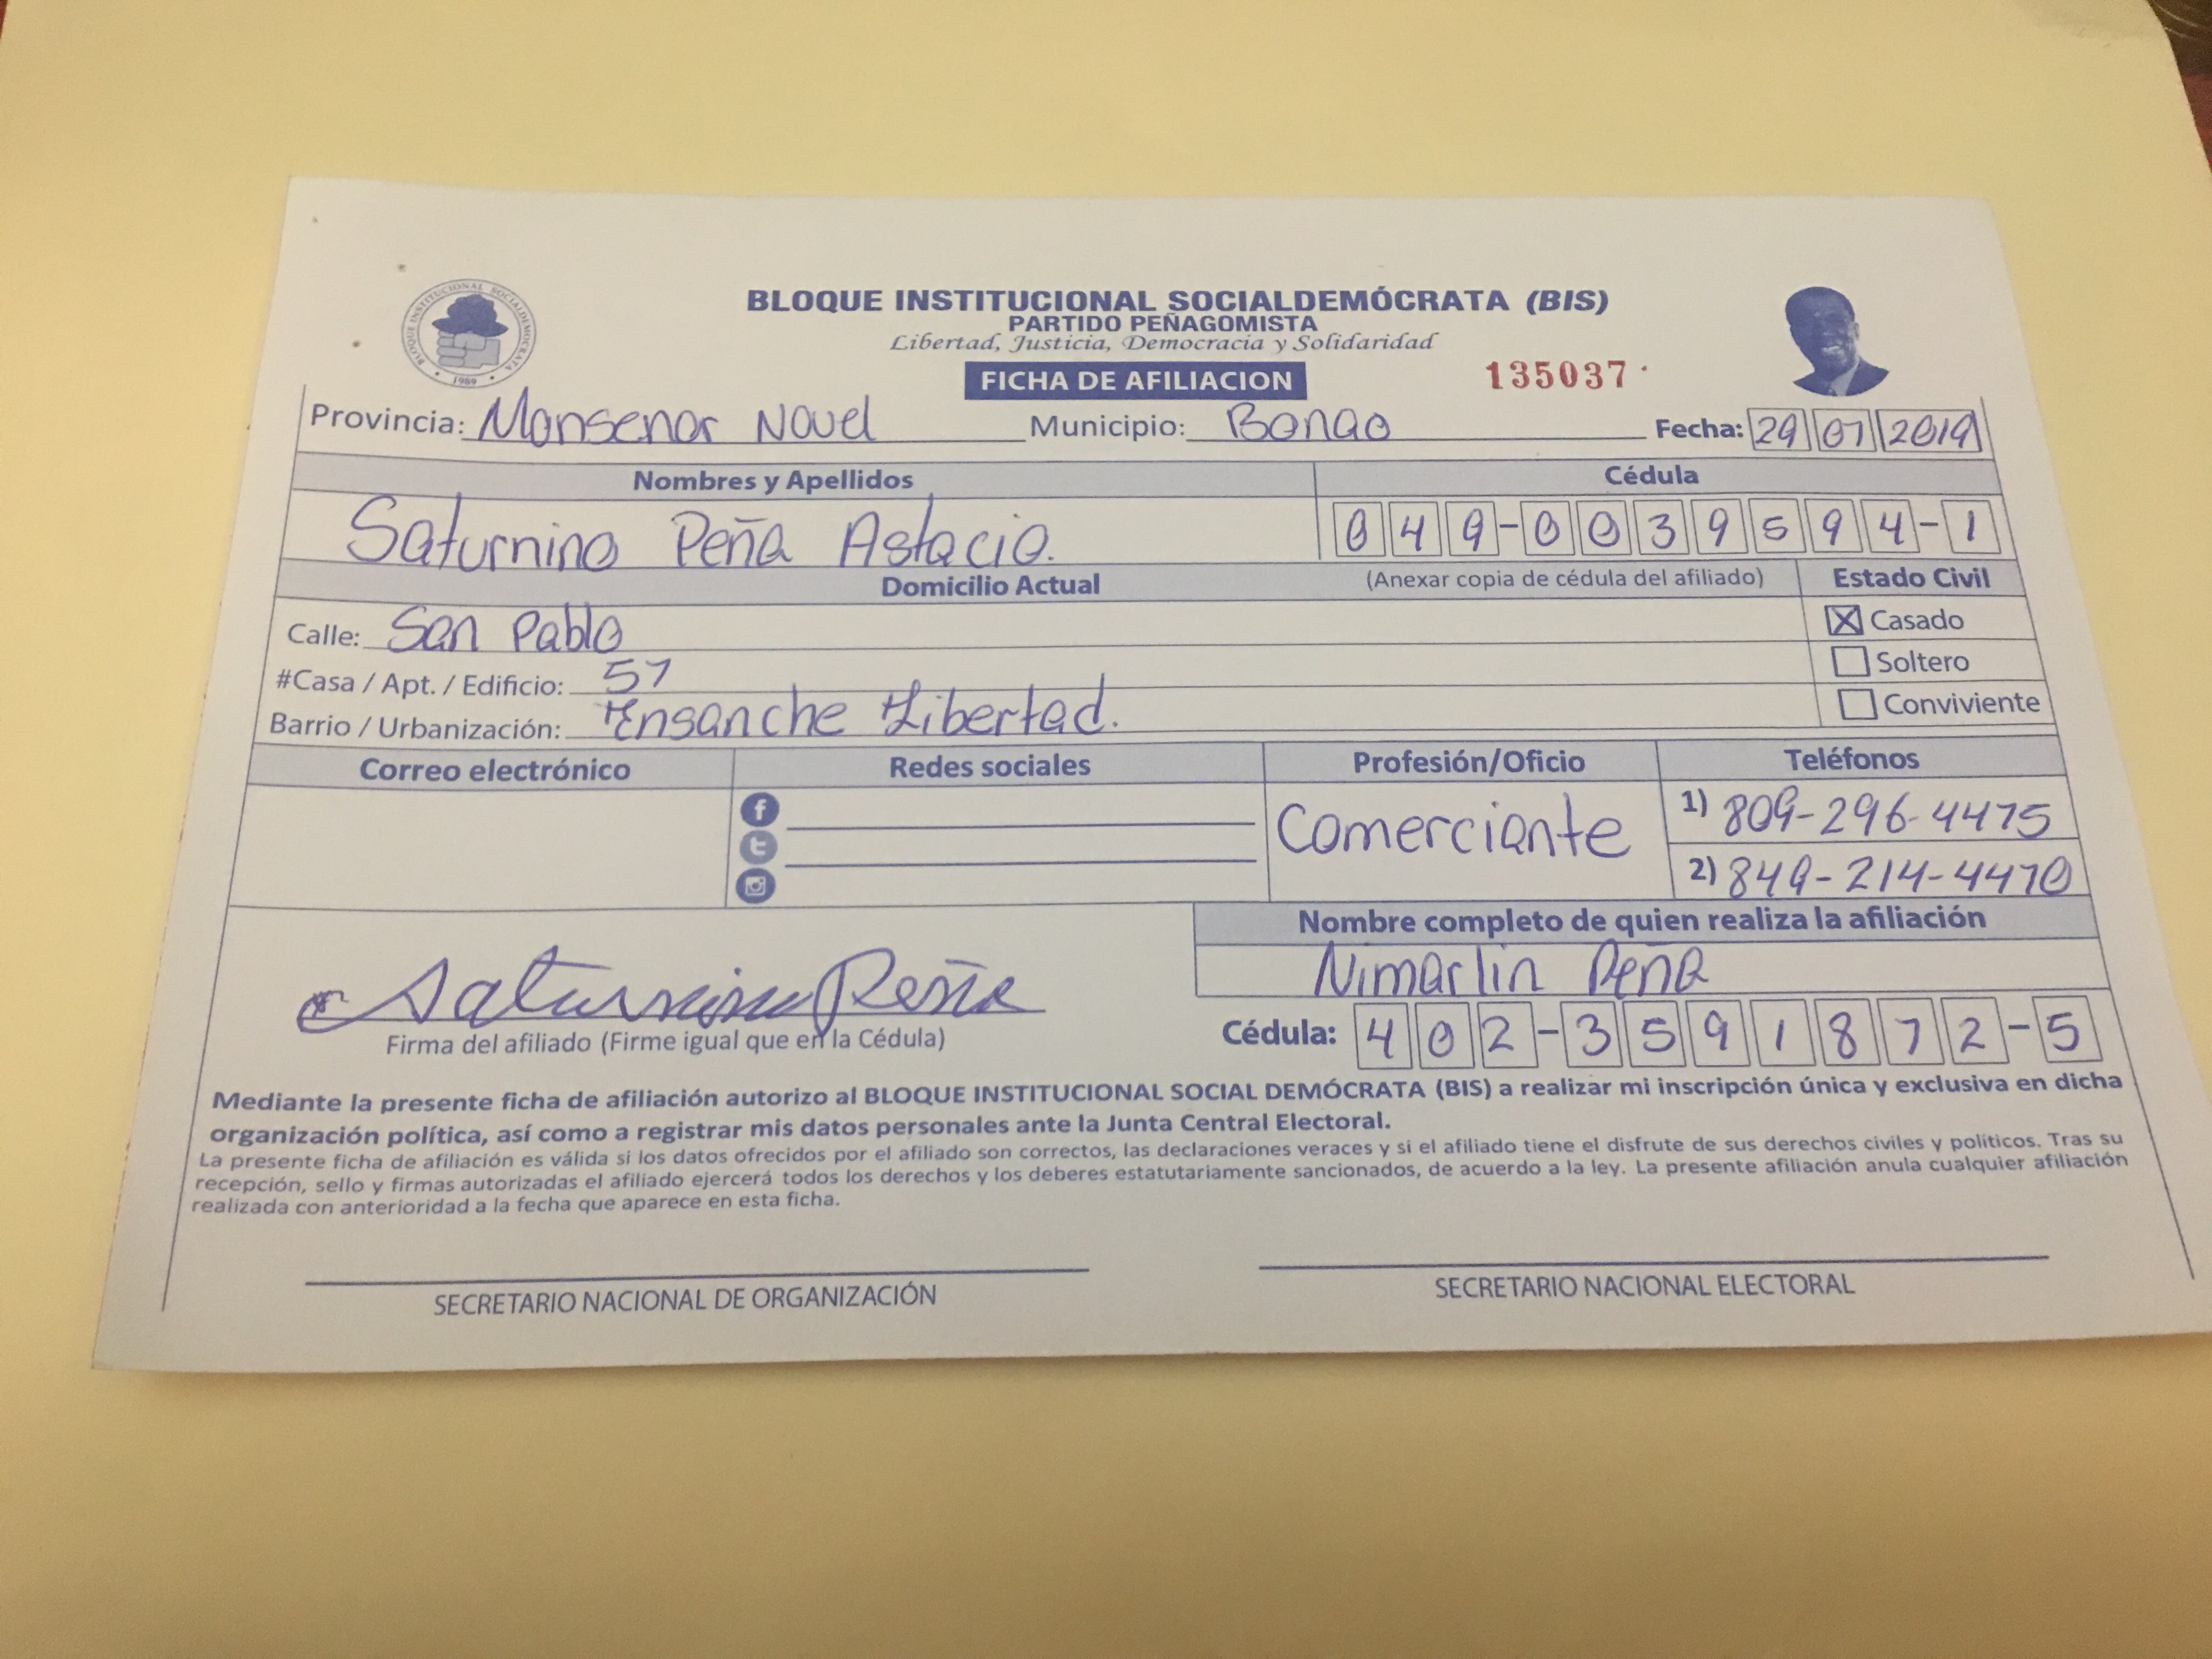 BLOQUE INSTITUCIONAL SOCIALDEMÓCRATA
1989
BLOQUE INSTITUCIONAL SOCIALDEMÓCRATA (BIS)
PARTIDO PEÑAGOMISTA
Libertad, Justicia, Democracia y Solidaridad
FICHA DE AFILIACION
135037
Provincia: Monsenor Nouel Municipio: Bonao Fecha: 29 07 2019
Nombres y Apellidos Cédula
Saturnino Peña Astacio. 049-0039594-1
Domicilio Actual (Anexar copia de cédula del afiliado) Estado Civil
Calle: San Pablo Casado
#Casa / Apt. / Edificio: 57 Soltero
Barrio / Urbanización: Ensanche Libertad. Conviviente
Correo electrónico Redes sociales Profesión/Oficio Teléfonos
Comerciante 1) 809-296-4475
2) 849-214-4470
Nombre completo de quien realiza la afiliación
Nimarlin Peña
Saturnino Peña
Firma del afiliado (Firme igual que en la Cédula) Cédula: 402-3591872-5
Mediante la presente ficha de afiliación autorizo al BLOQUE INSTITUCIONAL SOCIAL DEMÓCRATA (BIS) a realizar mi inscripción única y exclusiva en dicha
organización política, así como a registrar mis datos personales ante la Junta Central Electoral.
La presente ficha de afiliación es válida si los datos ofrecidos por el afiliado son correctos, las declaraciones veraces y si el afiliado tiene el disfrute de sus derechos civiles y políticos. Tras su
recepción, sello y firmas autorizadas el afiliado ejercerá todos los derechos y los deberes estatutariamente sancionados, de acuerdo a la ley. La presente afiliación anula cualquier afiliación
realizada con anterioridad a la fecha que aparece en esta ficha.
SECRETARIO NACIONAL DE ORGANIZACIÓN SECRETARIO NACIONAL ELECTORAL